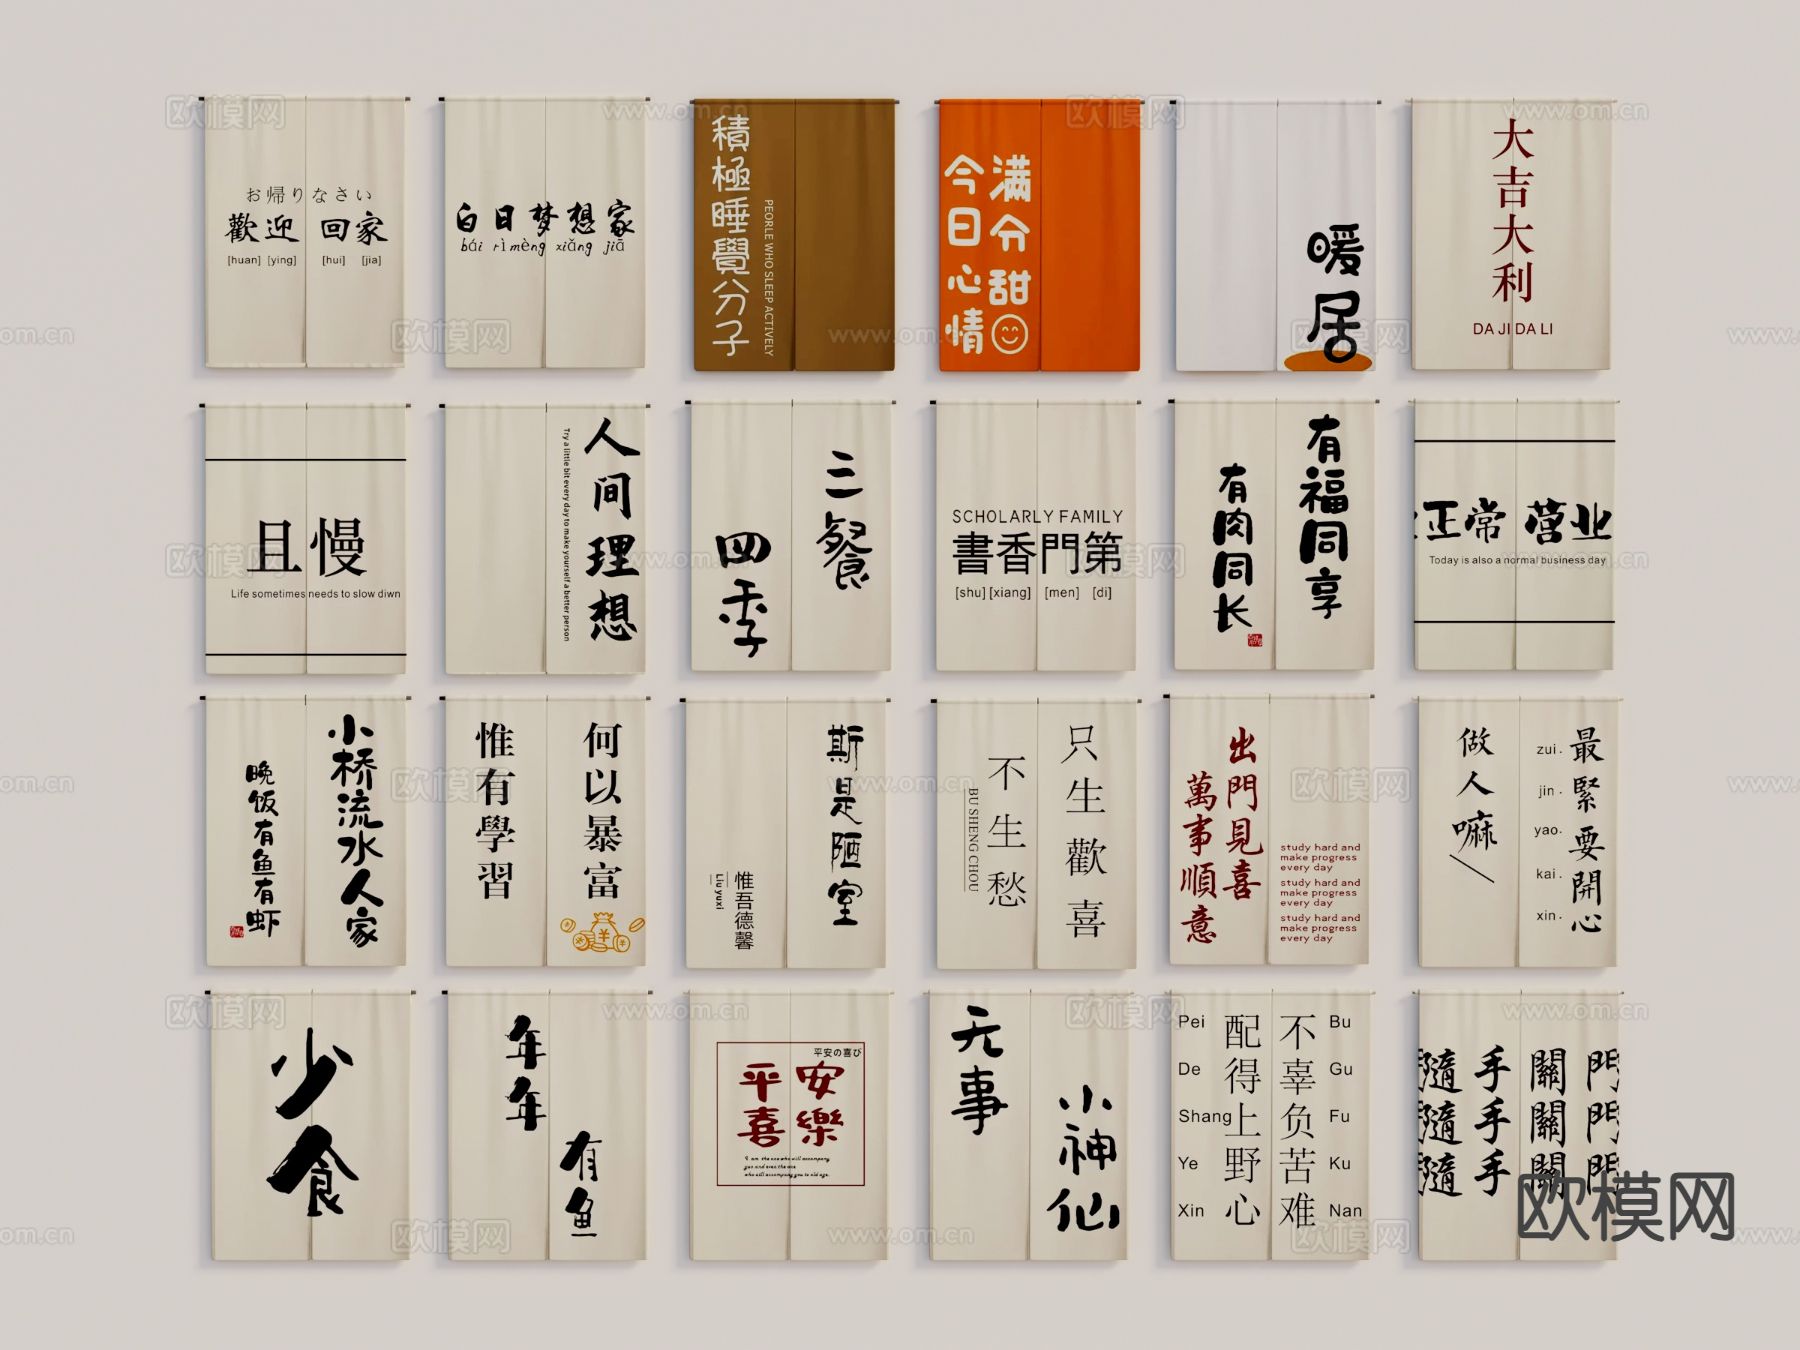 お帰りなさい
歡迎 回家
[huan] [ying] [hui] [jia]
白日梦想家
bái rì mèng xiǎng jiā
積極睡覺分子
PEORLE WHO SLEEP ACTIVELY
今日心情
满分甜
暖居
大吉大利
DA JI DA LI
且慢
Life sometimes needs to slow diwn
人间理想
Try a little bit every day to make yourself a better person
三餐
四季
SCHOLARLY FAMILY
書香門第
[shu] [xiang] [men] [di]
有福同享
有肉同长
正常 营业
Today is also a normal business day
小桥流水人家
晚饭有鱼有虾
何以暴富
惟有學習
斯是陋室
惟吾德馨
Liu yuxi
只生歡喜
不生愁
BU SHENG CHOU
出門見喜
萬事順意
study hard and
make progress
every day
study hard and
make progress
every day
study hard and
make progress
every day
最緊要開心
zui.
jin.
yao.
kai.
xin.
做人嘛
少食
年年
有鱼
平安の喜び
平安
喜樂
I am the one who will accompany
you and even the one
who will accompany you to old age.
无事
小神仙
不辜负苦难
Bu
Gu
Fu
Ku
Nan
配得上野心
Pei
De
Shang
Ye
Xin
隨手關門
隨手關門
隨手關門
欧模网
www.om.cn